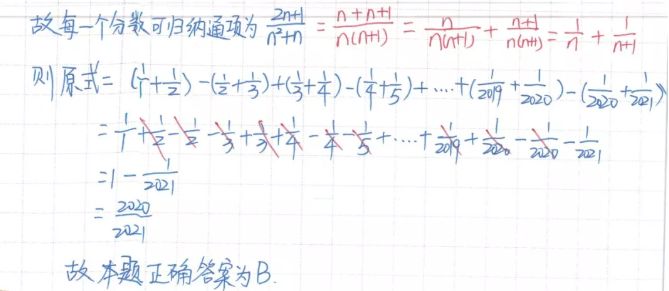 故每一个分数可归纳通项为 (2n+1)/(n²+n) = (n+n+1)/(n(n+1)) = n/(n(n+1)) + (n+1)/(n(n+1)) = 1/n + 1/(n+1)
则原式= (1/1+1/2)-(1/2+1/3)+(1/3+1/4)-(1/4+1/5)+····+(1/2019+1/2020)-(1/2020+1/2021)
= 1/1+1/2-1/2-1/3+1/3+1/4-1/4-1/5+····+1/2019+1/2020-1/2020-1/2021
=1-1/2021
=2020/2021
故本题正确答案为B.